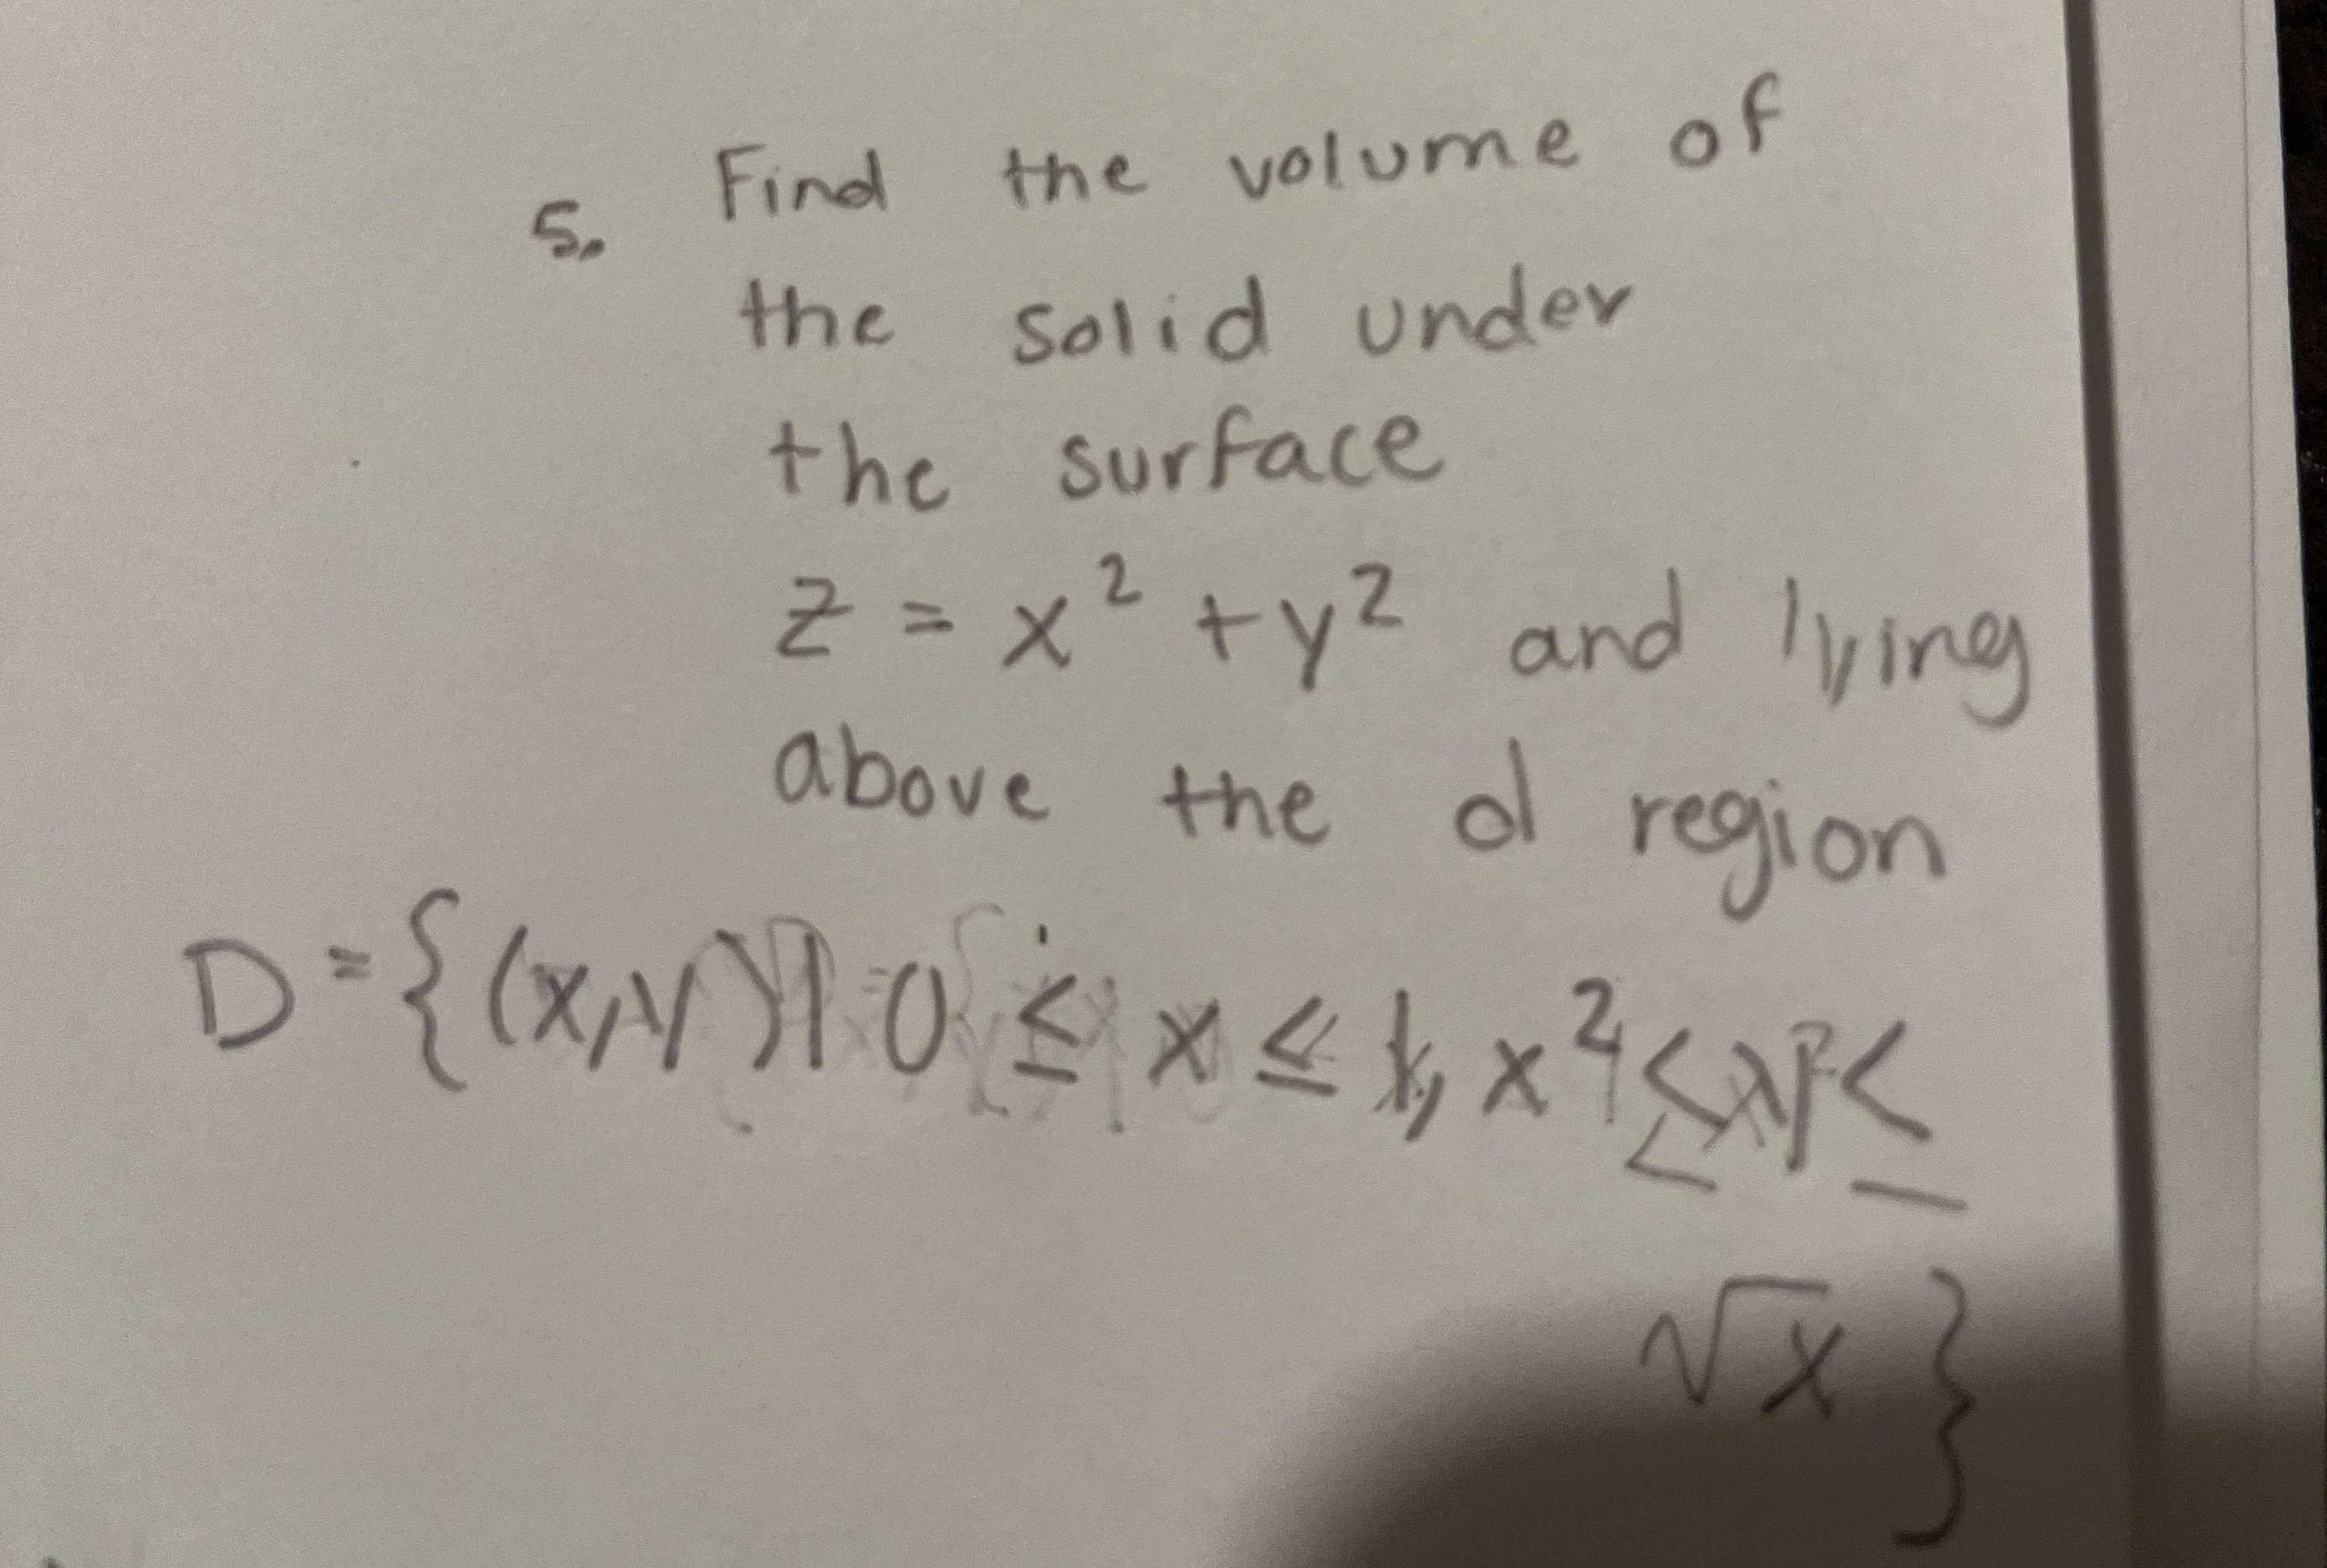 5. Find the volume of
the solid under
the surface
z = x² + y² and lying
above the d region
D = {(x,y)| 0 ≤ x ≤ 1, x² ≤ y ≤
√x }